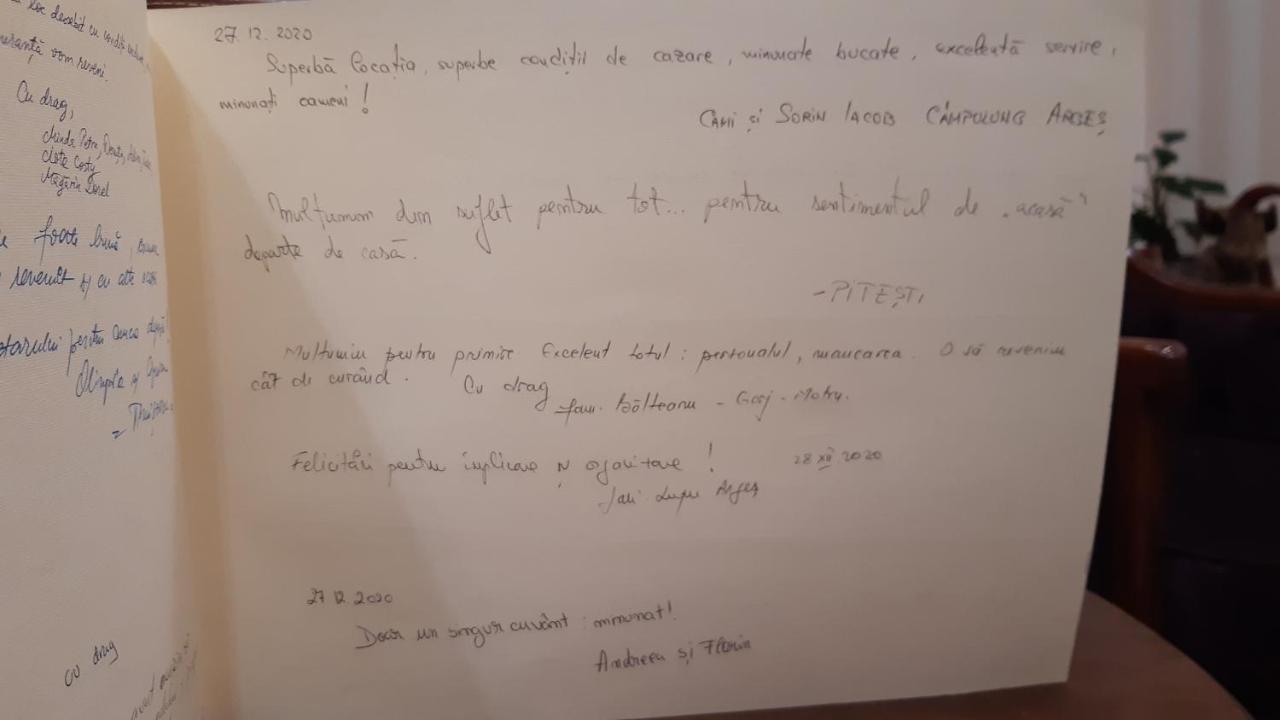 loc deosebit cu
vom reveni.
Cu drag,
foarte bună,
revenit și cu alte
pentru
Olimpia și
cu drag
27.12.2020
Superbă locația, superbe condiții de cazare, minunate bucate, excelentă servire,
minunați oameni!
CAMI și SORIN IACOB CÂMPULUNG ARGEȘ
Mulțumim din suflet pentru tot... pentru sentimentul de „acasă”
departe de casă.
- PITEȘTI
Multumim pentru primire Excelent totul: personalul, mancarea. O să revenim
cât de curând. Cu drag
fam. Bălteanu - Gorj - Motru.
Felicitări pentru implicare și organizare! 28 XII 2020
Lupu Argeș
27.12.2020
Doar un singur cuvânt: minunat!
Andreea și Florin